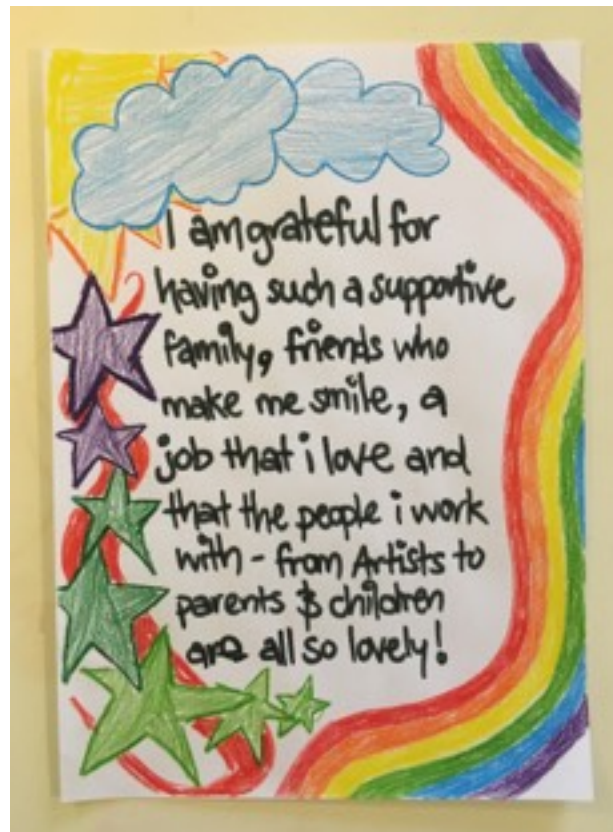 I am grateful for
having such a supportive
family, friends who
make me smile, a
job that i love and
that the people i work
with - from Artists to
parents & children
are all so lovely!